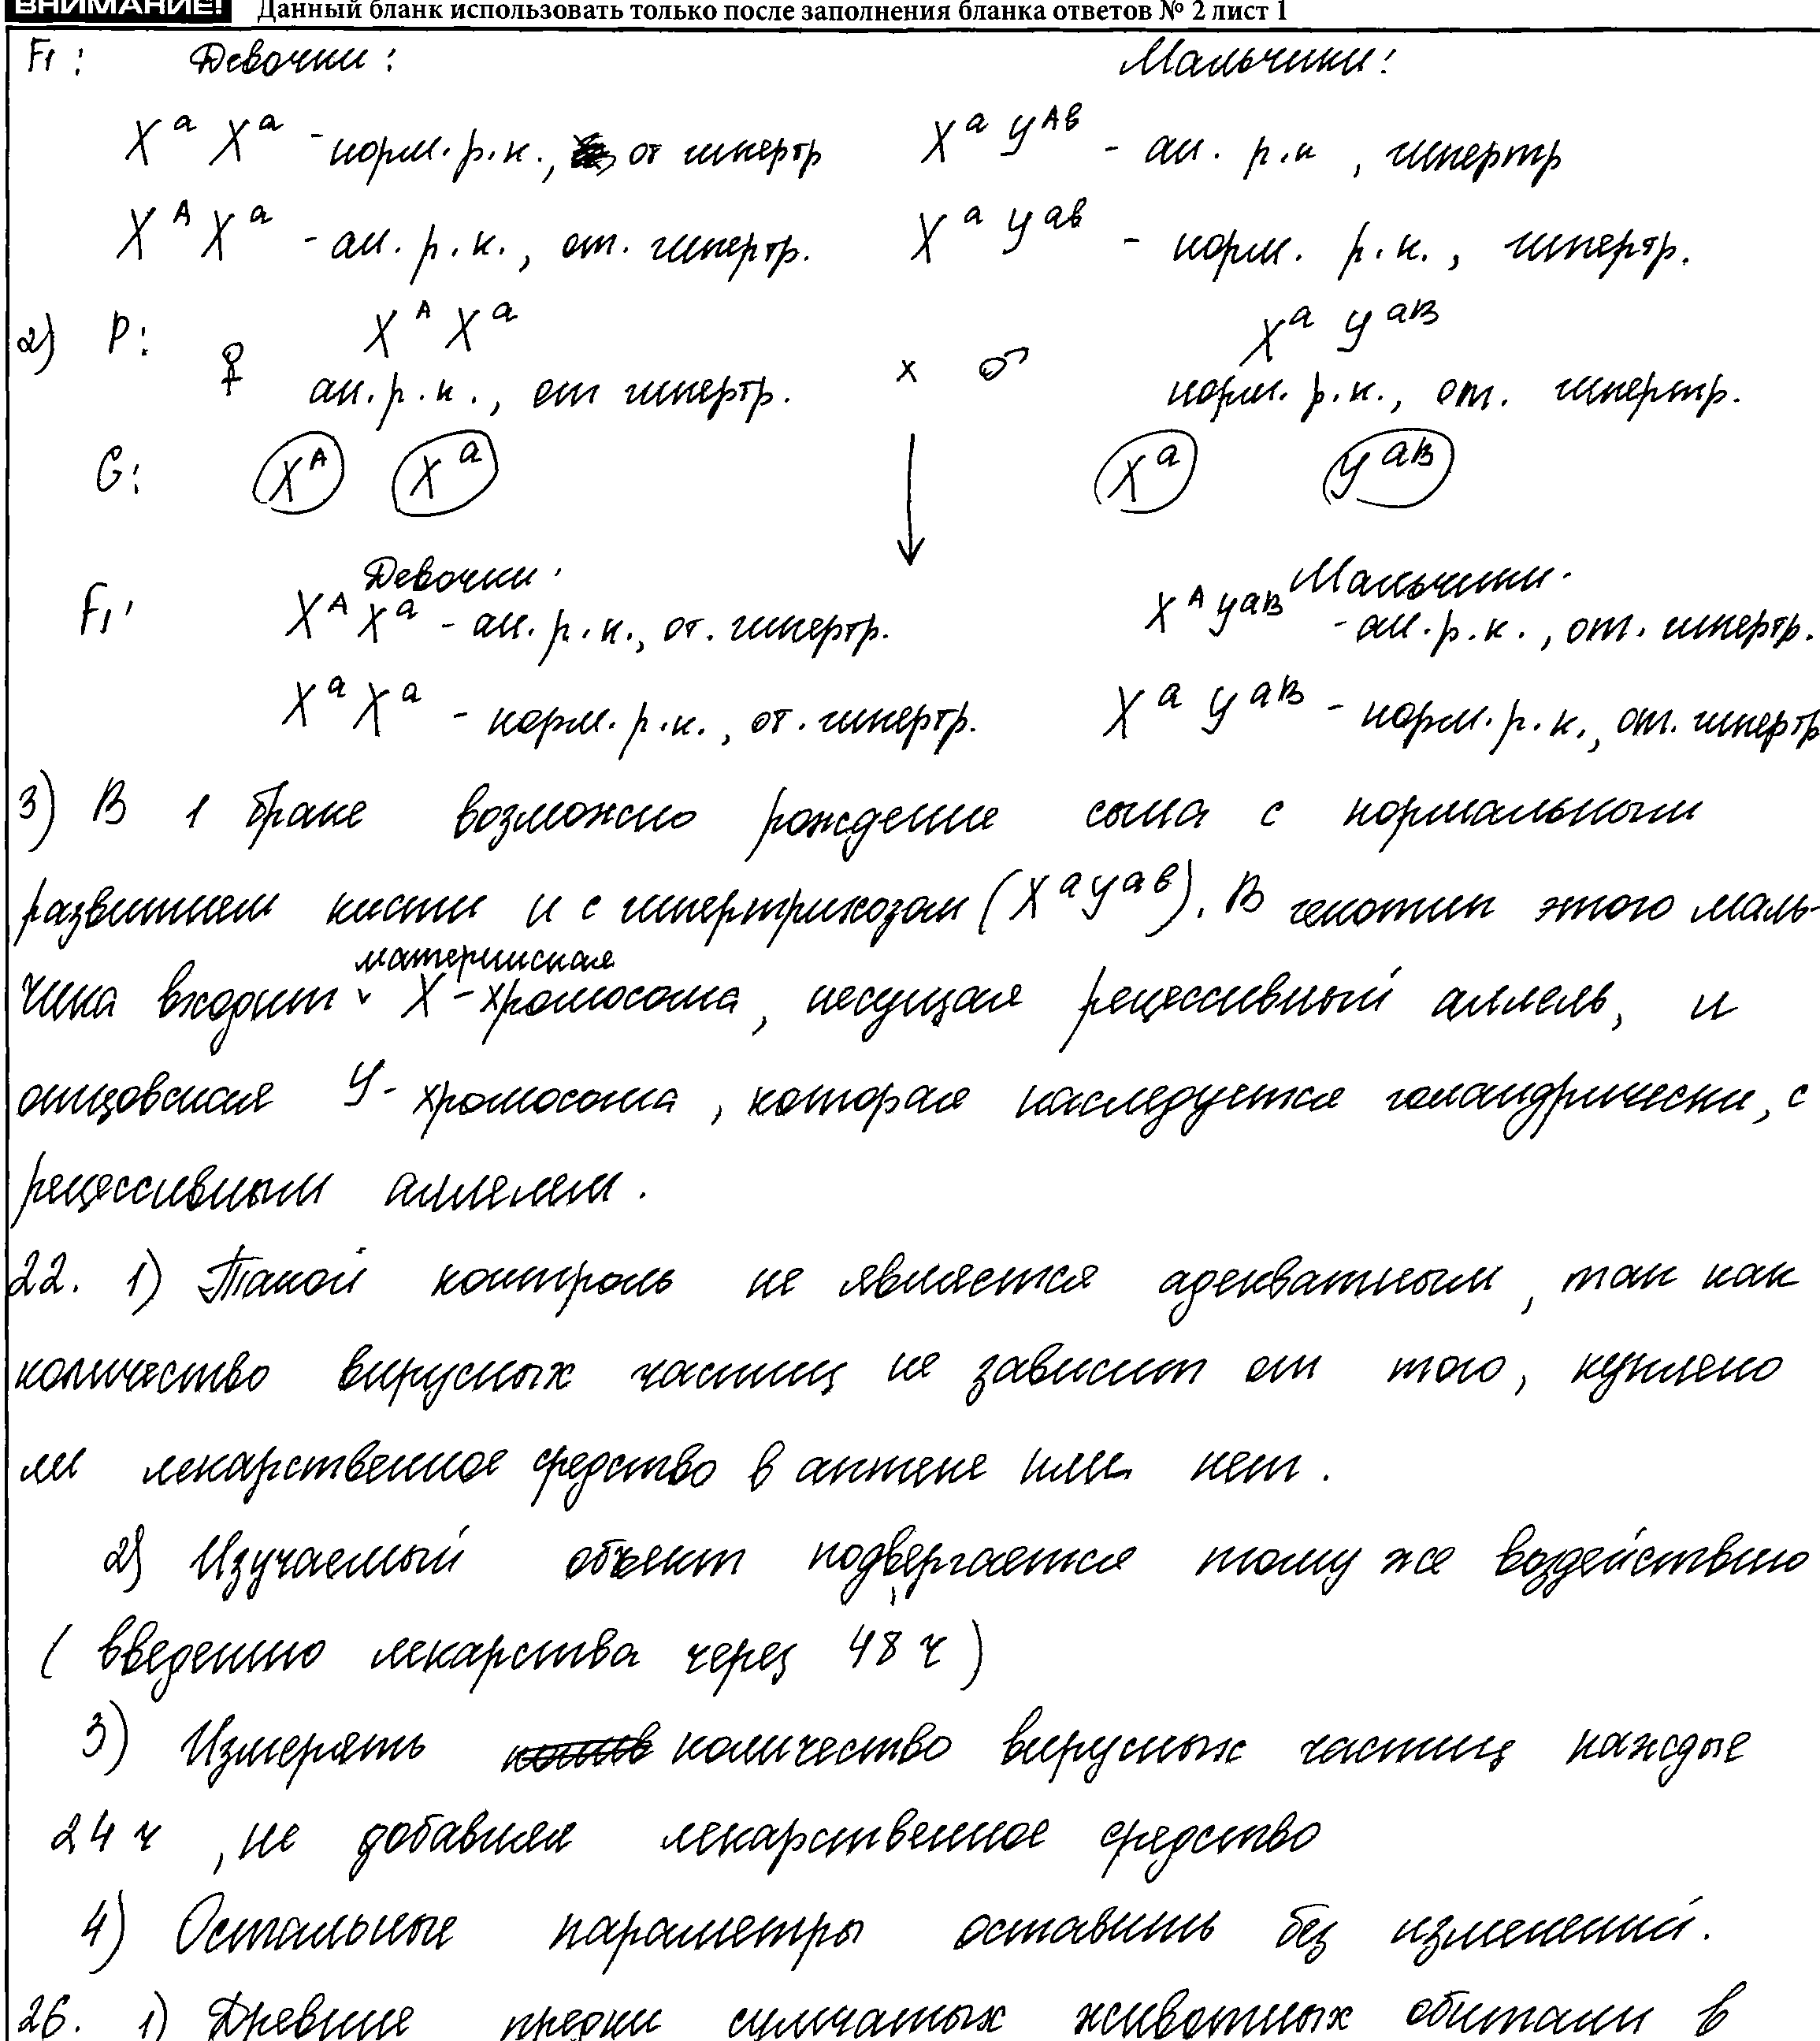 ВНИМАНИЕ! Данный бланк использовать только после заполнения бланка ответов № 2 лист 1
F1: Девочки: Мальчики:
X^a X^a - норм. р. к., от гипертр X^a y^Aв - ан. р.к, гипертр
X^A X^a - ан. р. к., от. гипертр. X^a y^aв - норм. р. к., гипертр.
2) P: ♀ X^A X^a x ♂ X^a y^aB
ан. р. к., от гипертр. норм. р. к., от. гипертр.
G: X^A X^a X^a y^aB
F1: Девочки: Мальчики.
X^A X^a - ан. р. к., от. гипертр. X^A y^aB - ан. р. к., от. гипертр.
X^a X^a - норм. р. к., от. гипертр. X^a y^aB - норм. р. к., от. гипертр
3) В 1 браке возможно рождение сына с нормальным
развитием кисти и с гипертрихозом (X^a y^aв). В генотип этого маль-
чика входит материнская X-хромосома, несущая рецессивный аллель, и
отцовская y-хромосома, которая наследуется голандрически, с
рецессивным аллелем.
22. 1) Такой контроль не является адекватным, так как
количество вирусных частиц не зависит от того, куплено
ли лекарственное средство в аптеке или нет.
2) Изучаемый объект подвергается тому же воздействию
(введению лекарства через 48 ч)
3) Измерять количество вирусных частиц каждые
24 ч, не добавляя лекарственное средство
4) Остальные параметры оставить без изменений.
26. 1) Древние предки сумчатых животных обитали в